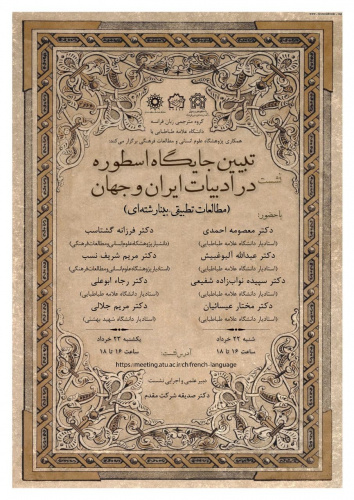 گروه مترجمی زبان فرانسه
دانشگاه علامه طباطبایی با
همکاری پژوهشگاه علوم انسانی و مطالعات فرهنگی برگزار می‌کند:
نشست
تبیین جایگاه اسطوره
در ادبیات ایران و جهان
(مطالعات تطبیقی، بینارشته‌ای)
با حضور:
دکتر معصومه احمدی
(استادیار دانشگاه علامه طباطبایی)
دکتر عبدالله آلبوغبیش
(استادیار دانشگاه علامه طباطبایی)
دکتر سپیده نواب‌زاده شفیعی
(استادیار دانشگاه علامه طباطبایی)
دکتر مختار عیسائیان
(استادیار دانشگاه علامه طباطبایی)
شنبه ۲۲ خرداد
ساعت ۱۶ تا ۱۸
دکتر فرزانه گشتاسب
(دانشیار پژوهشگاه علوم انسانی و مطالعات فرهنگی)
دکتر مریم شریف نسب
(استادیار پژوهشگاه علوم انسانی و مطالعات فرهنگی)
دکتر رجاء ابوعلی
(استادیار دانشگاه علامه طباطبایی)
دکتر مریم جلالی
(استادیار دانشگاه شهید بهشتی)
یکشنبه ۲۳ خرداد
ساعت ۱۶ تا ۱۸
آدرس نشست:
https://meeting.atu.ac.ir/ch/french-language
دبیر علمی و اجرایی نشست
دکتر صدیقه شرکت مقدم